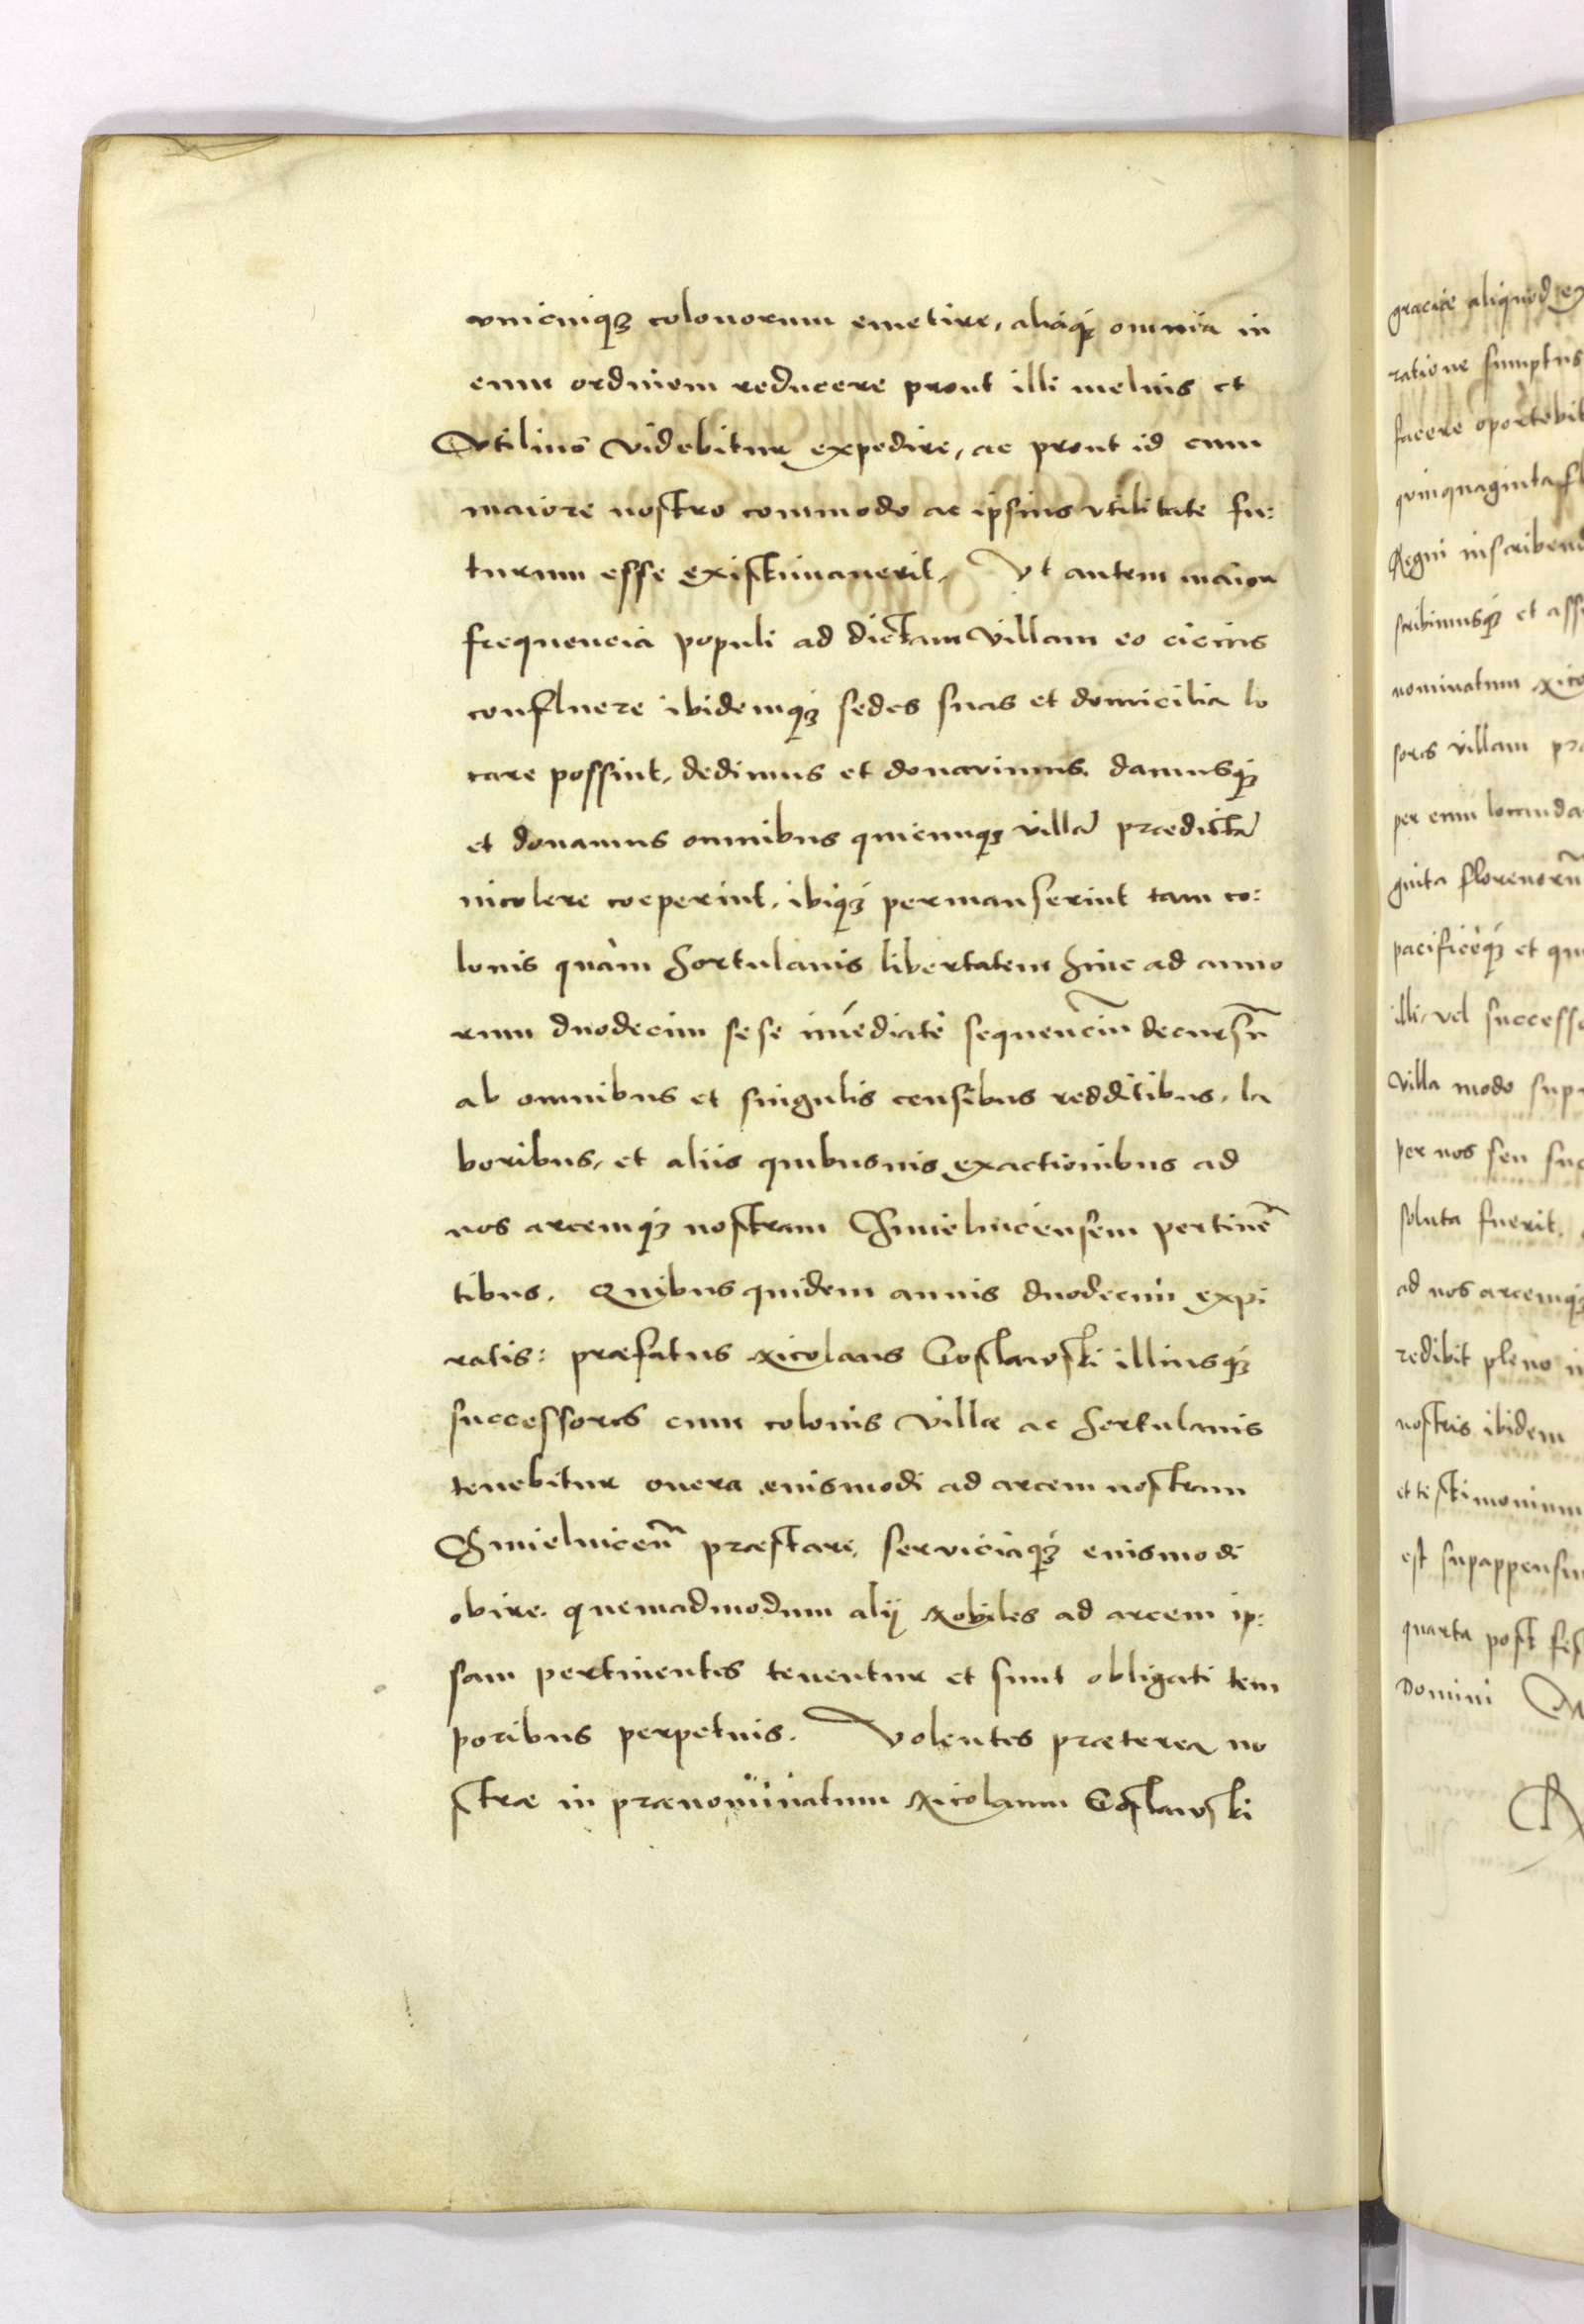 vnicuiqꝫ colonorum emetire, aliaqꝫ omnia in
eum ordinem reducere prout illi melius et
Vtilius videbitur expedire, ac prout id cum
maiore nostro commodo ac ipsius vtilitate fu:
turum esse existimauerit. Vt autem maior
frequencia populi ad dictam villam eo cicius
confluere ibidemqꝫ sedes suas et domicilia lo
care possint, dedimus et donauimus, damusqꝫ
et donamus omnibus quicunqꝫ villā prædictā
incolere coeperint, ibiqꝫ permanserint tam co:
lonis quàm hortulanis libertatem hinc ad anno
rum duodecim sese imediatè sequenciū decursū
ab omnibus et singulis censibus redditibus, la
boribus, et aliis quibusuis exactionibus ad
nos arcemqꝫ nostram Chmielnicensem pertinē
tibus. Quibus quidem annis duodecim expi
ratis: præfatus Nicolaus Goslawski illiusqꝫ
successores cum colonis villæ ac hortulanis
tenebitur onera eiusmodi ad arcem nostram
Chmielniceñ præstare, serviciaqꝫ eiusmodi
obire, quemadmodum alij Nobiles ad arcem ip:
sam pertinentes tenentur et sunt obligati tem
poribus perpetuis. Volentes præterea no
stræ in prænominatum Nicolaum Goslawski
graciæ aliquod ex
ratione sumptus
facere oportebit
quinquaginta fl
Regni inscribend
scribimusqꝫ et ass
nominatum Nico
sores villam præ
per eum locanda
ginta florenorū
pacificèqꝫ et qu
illi, vel successo
villa modo sup
per nos seu suc
soluta fuerit,
ad nos arcemqꝫ
redibit pleno i
nostris ibidem
et testimonium
est subappensum
quarta post fes
Domini M